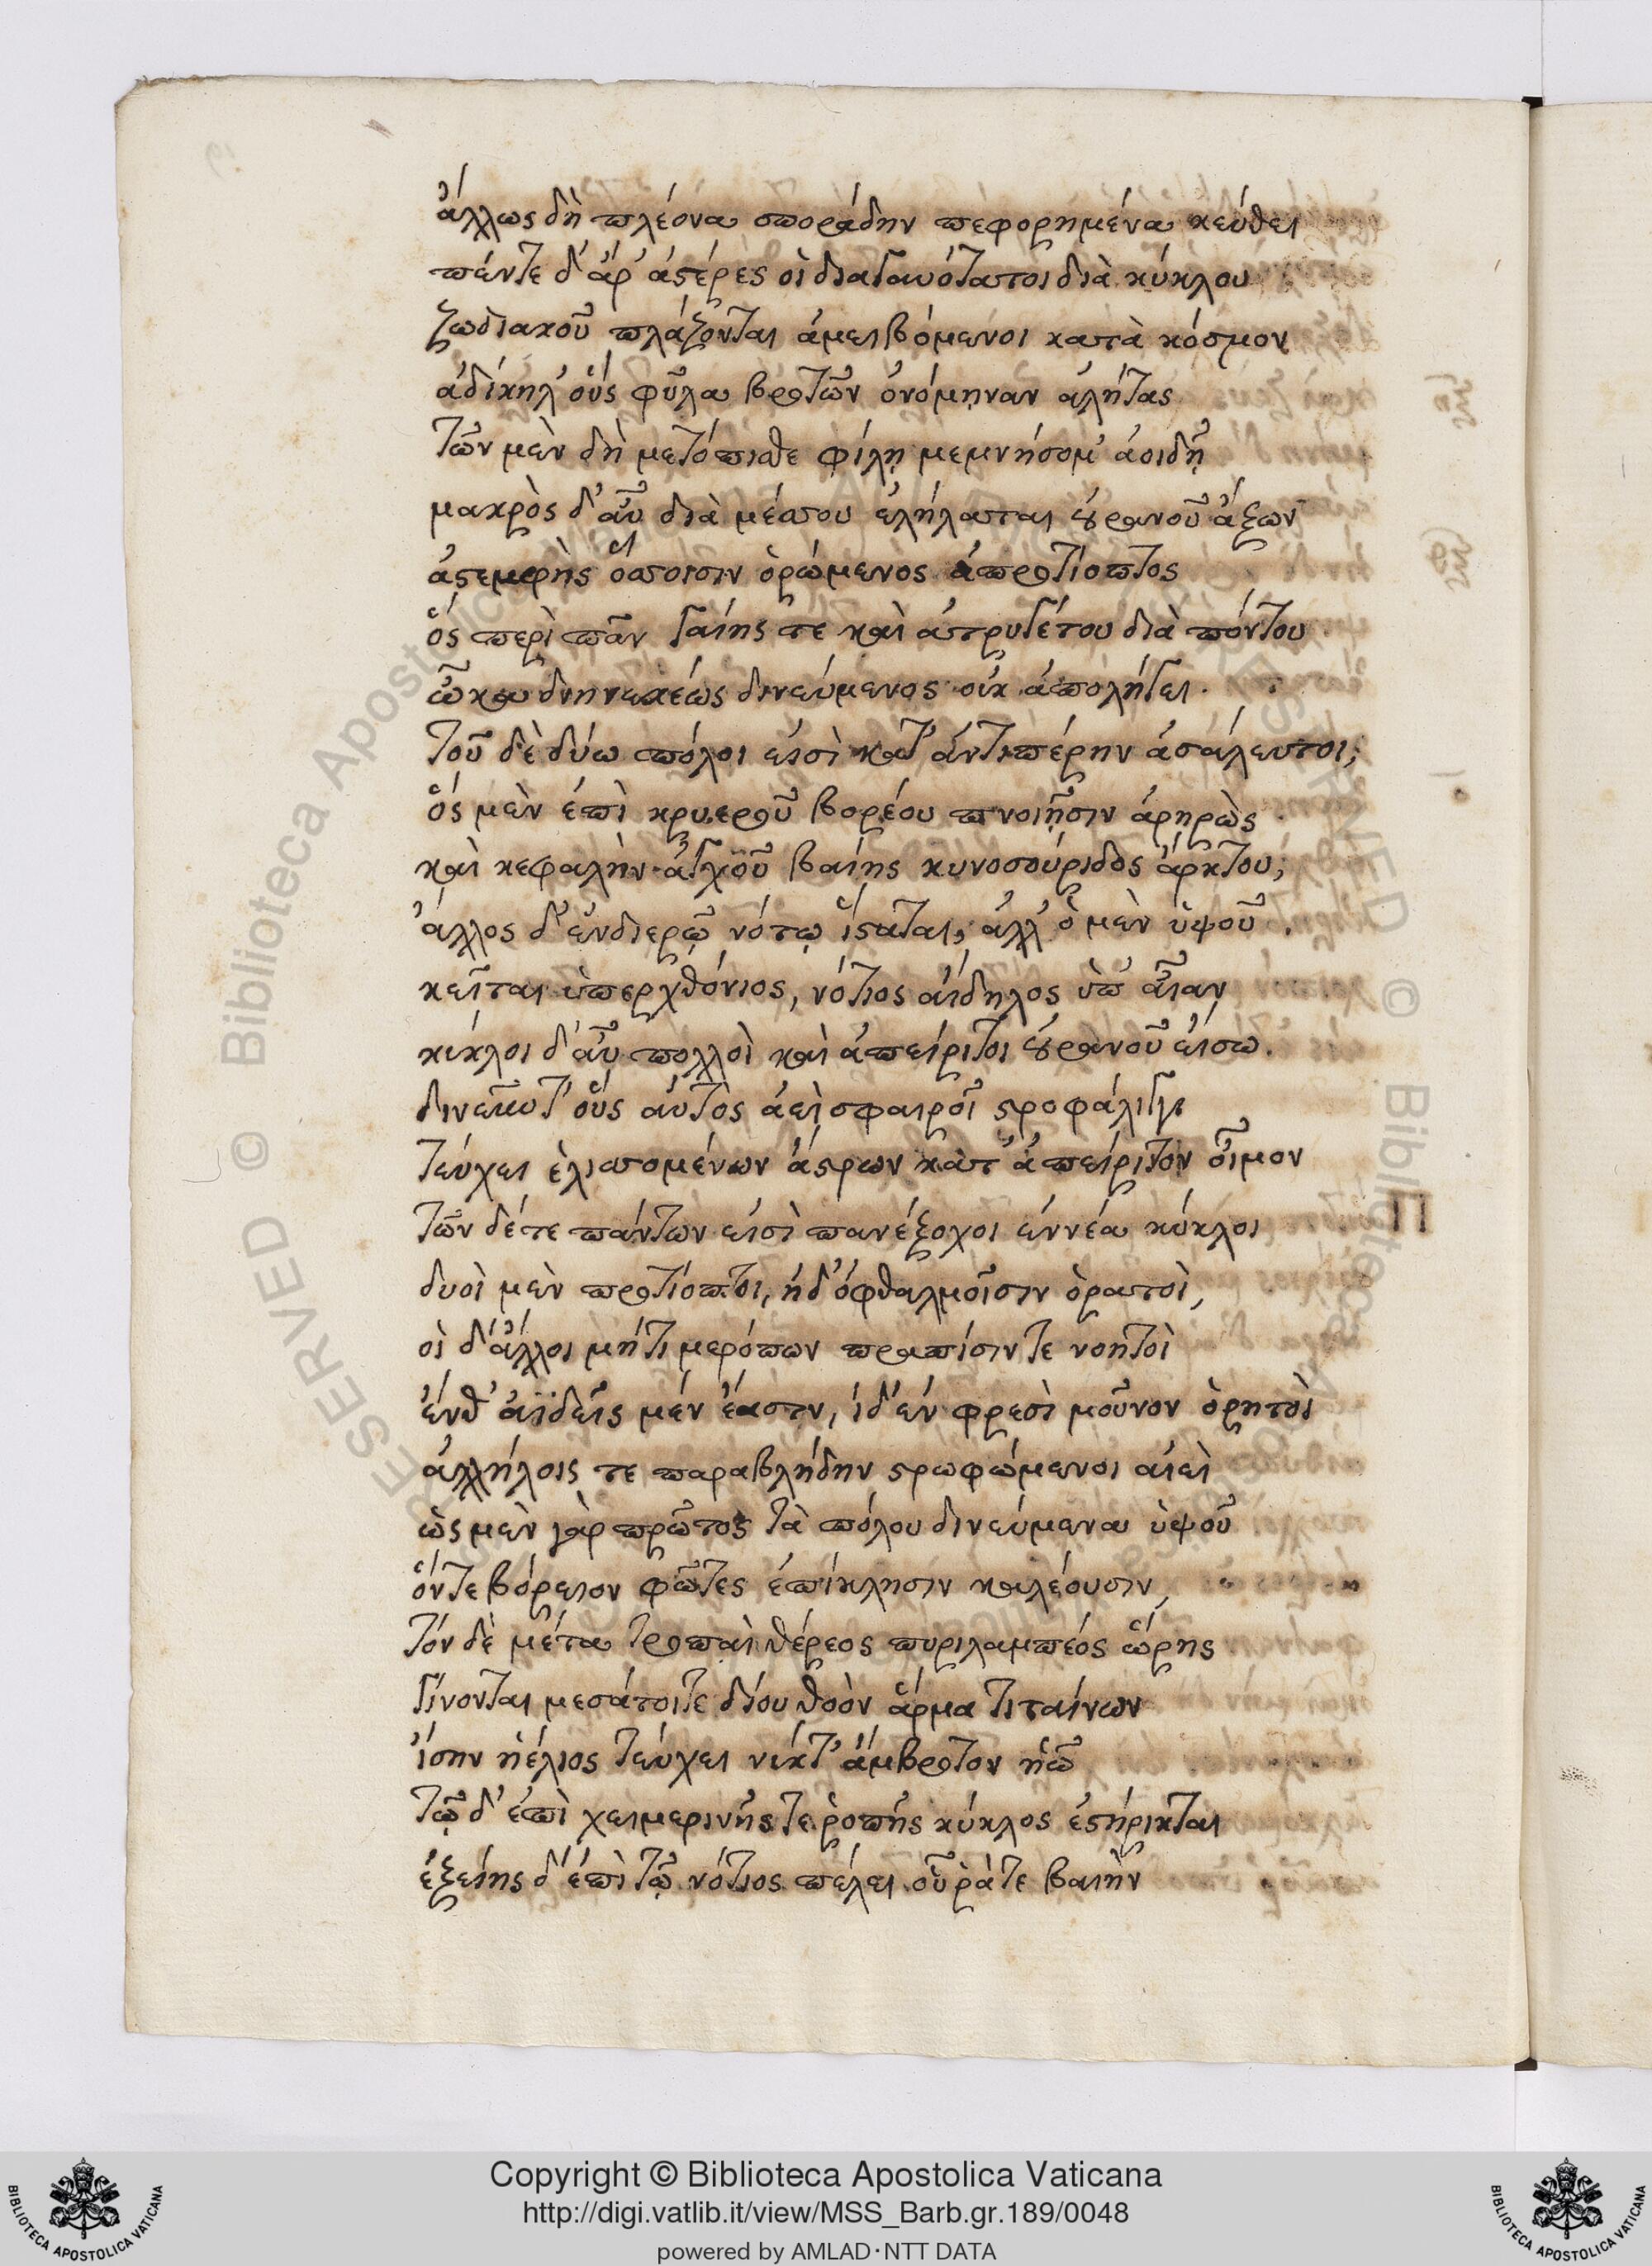 ἄλλως δὴ πλέονα σποράδην πεφορημένα κεύθει
πέντε δ' ἄρ' ἀστέρες οἱ διαγαυότατοι διὰ κύκλου
ζωδιακοῦ πλάζονται ἀμειβόμενοι κατὰ κόσμον
ἀδίκηλ' οὓς φῦλα βροτῶν ὀνόμηναν ἀλήτας
τῶν μὲν δὴ μετόπισθε φίλῃ μεμνήσομ' ἀοιδῇ
μακρὸς δ' αὖ διὰ μέσσου ἐλήλαται οὐρανοῦ ἄξων
ἀστεμφὴς ὄσσοισιν ὁρώμενος ἀπροτίοπτος
ὃς περὶ πᾶν γαίης τε καὶ ἀτρυγέτου διὰ πόντου
ὦκα διηνεκέως δινεύμενος οὐκ ἀπολήγει.
τοῦ δὲ δύω πόλοι εἰσὶ κατ' ἀντιπέρην ἀσάλευτοι;
ὃς μὲν ἐπὶ κρυεροῦ βορέου πνοιῇσιν ἀρηρὼς
καὶ κεφαλὴν ἀγχοῦ βαίης κυνοσούριδος ἄρκτου;
ἄλλος δ' ἐνδιερῷ νότῳ ἵσταται, ἀλλ' ὁ μὲν ὑψοῦ.
κεῖται ὑπερχθόνιος, νότιος ἀίδηλος ὑπ' αἶαν
κύκλοι δ' αὖ πολλοὶ καὶ ἀπείριτοι οὐρανοῦ εἴσω.
οὓς αὐτὸς ἀεὶ σφαιροῖ στροφάλιγγι
τεύχει ἑλισσομένων ἄστρων κατ' ἀπείριτον οἶμον
τῶν δέτε πάντων εἰσὶ πανέξοχοι ἐννέα κύκλοι
δυοὶ μὲν προτίοπτοι, ἠδ' ὀφθαλμοῖσιν ὁρατοὶ,
οἱ δ' ἄλλοι μήτι μερόπων πραπίσιν τε νοητοὶ
ἔνθ' ἀϊδεῖς μέν ἔασιν, ἰδ' ἐν φρεσὶ μοῦνον ὁρητοὶ
ἀλλήλοις τε παραβλήδην στρωφώμενοι αἰεὶ
ὡς μὲν γὰρ πρῶτος τὰ πόλου δινεύμενα ὑψοῦ
ὅντε βόρειον φῶτες ἐπίκλησιν καλέουσιν,
τόν δὲ μέτα τροπαὶ θέρεος πυριλαμπέος ὥρης
γίνονται μεσάτοιτε δίου θοὸν ἅρμα τιταίνων
ἴσην ἠέλιος τεύχει νύκτ' ἄμβροτον ἠῶ
τῷ δ' ἐπὶ χειμερινῆς τε ῥοπῆς κύκλος ἐστήρικται
ἑξείης δ' ἐπὶ τῷ νότιος πέλει οὗ ῥάτε βαιὴν
Copyright © Biblioteca Apostolica Vaticana
http://digi.vatlib.it/view/MSS_Barb.gr.189/0048
powered by AMLAD·NTT DATA